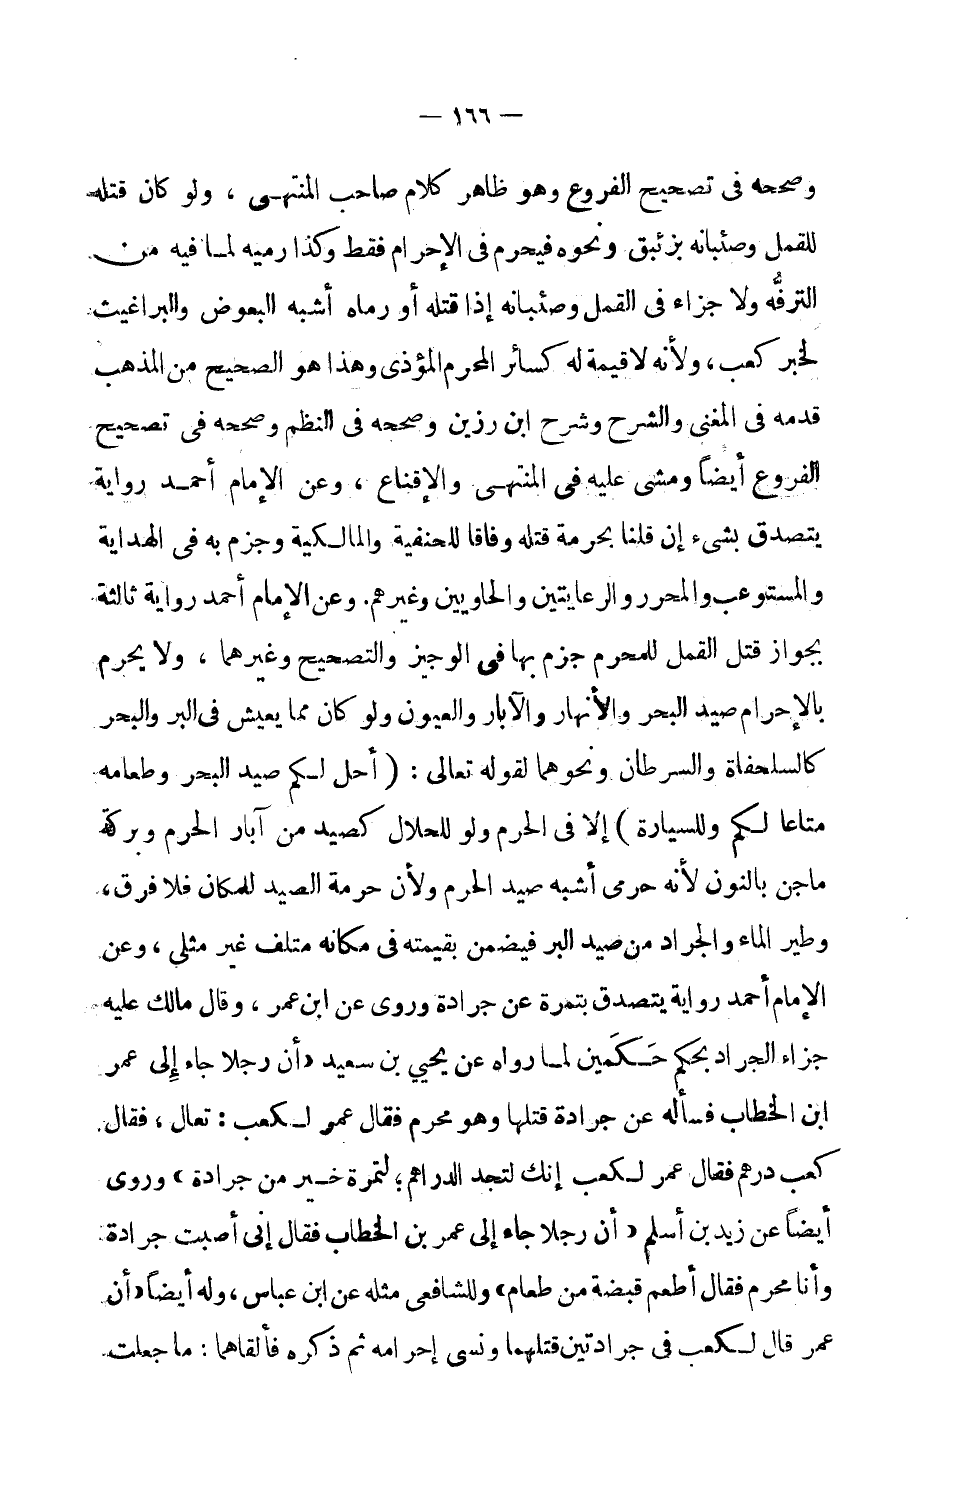 — ١٦٦ —
وصححه فى تصحيح الفروع وهو ظاهر كلام صاحب المنتهى ، ولو كان قتله
للقمل وصئبانه بزئبق ونحوه فيحرم فى الإحرام فقط وكذا رميه لما فيه من
الترفُّه ولا جزاء فى القمل وصئبانه إذا قتله أو رماه أشبه البعوض والبراغيث
لخبر كعب ، ولأنه لا قيمة له كسائر المحرم المؤذى وهذا هو الصحيح من المذهب
قدمه فى المغنى والشرح وشرح ابن رزين وصححه فى النظم وصححه فى تصحيح
الفروع أيضاً ومشى عليه فى المنتهى والإقناع ، وعن الإمام أحمد رواية
يتصدق بشىء إن قلنا بحرمة قتله وفاقا للحنفية والمالكية وجزم به فى الهداية
والمستوعب والمحرر والرعايتين والحاويين وغيرهم. وعن الإمام أحمد رواية ثالثة
بجواز قتل القمل للمحرم جزم بها فى الوجيز والتصحيح وغيرهما ، ولا يحرم
بالإحرام صيد البحر والأنهار والآبار والعيون ولو كان مما يعيش فى البر والبحر
كالسلحفاة والسرطان ونحوهما لقوله تعالى : ( أحل لكم صيد البحر وطعامه
متاعا لكم وللسيارة ) إلا فى الحرم ولو للحلال كصيد من آبار الحرم وبركة
ماجن بالنون لأنه حرمى أشبه صيد الحرم ولأن حرمة الصيد للمكان فلا فرق ،
وطير الماء والجراد من صيد البر فيضمن بقيمته فى مكانه متلف غير مثلى ، وعن
الإمام أحمد رواية يتصدق بتمرة عن جرادة وروى عن ابن عمر ، وقال مالك عليه
جزاء الجراد بحكم حَكَمين لما رواه عن يحيي بن سعيد «أن رجلا جاء إِلى عمر
ابن الخطاب فسأله عن جرادة قتلها وهو محرم فقال عمر لكعب : تعال ، فقال
كعب درهم فقال عمر لكعب إنك لتجد الدراهم ؛ لتمرة خير من جرادة » وروى
أيضاً عن زيد بن أسلم « أن رجلا جاء إلى عمر بن الخطاب فقال إنى أصبت جرادة
وأنا محرم فقال أطعم قبضة من طعام» وللشافعى مثله عن ابن عباس ، وله أيضاً «أن
عمر قال لكعب فى جرادتين قتلهما ونسى إحرامه ثم ذكره فألقاهما : ما جعلت